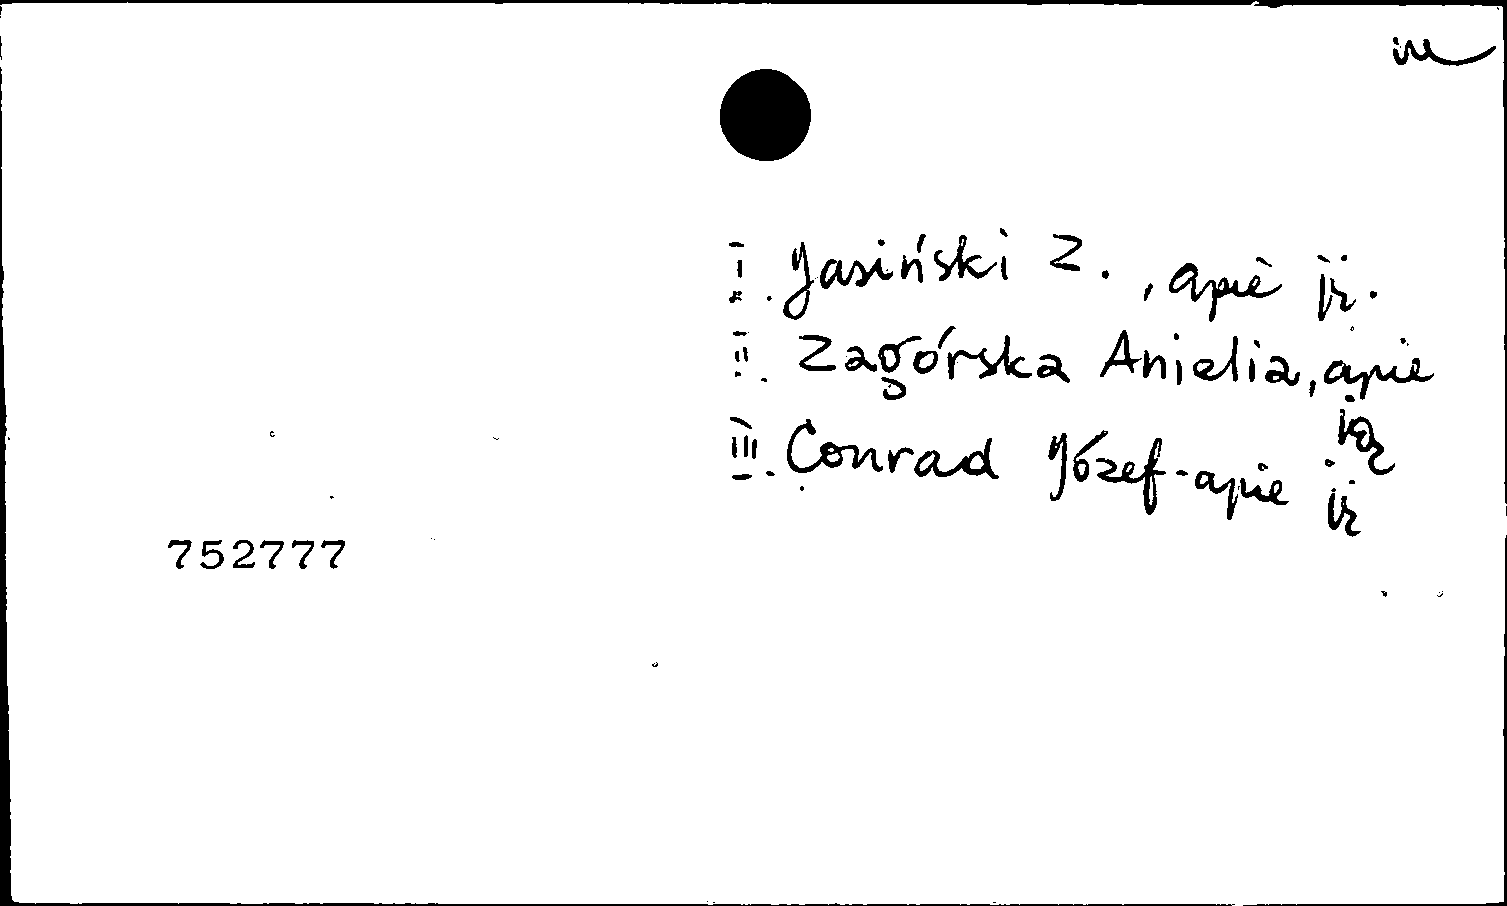 I. Jasiński Z., apie jį.
II. Zagórska Anielia, apie
ją
III. Conrad Józef - apie jį
752777